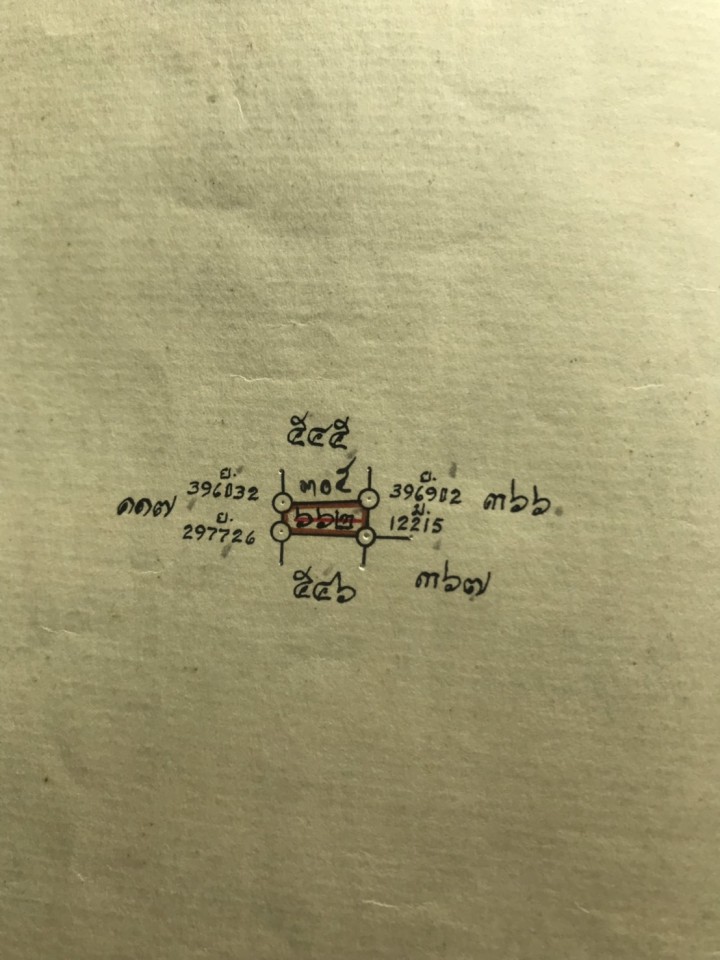 ๕๔๕
๓๐๕
ย.
396032
ย.
396902
๓๖๖
๑๑๗
๖๖๒
ม.
12215
ย.
297726
๕๔๖
๓๖๗